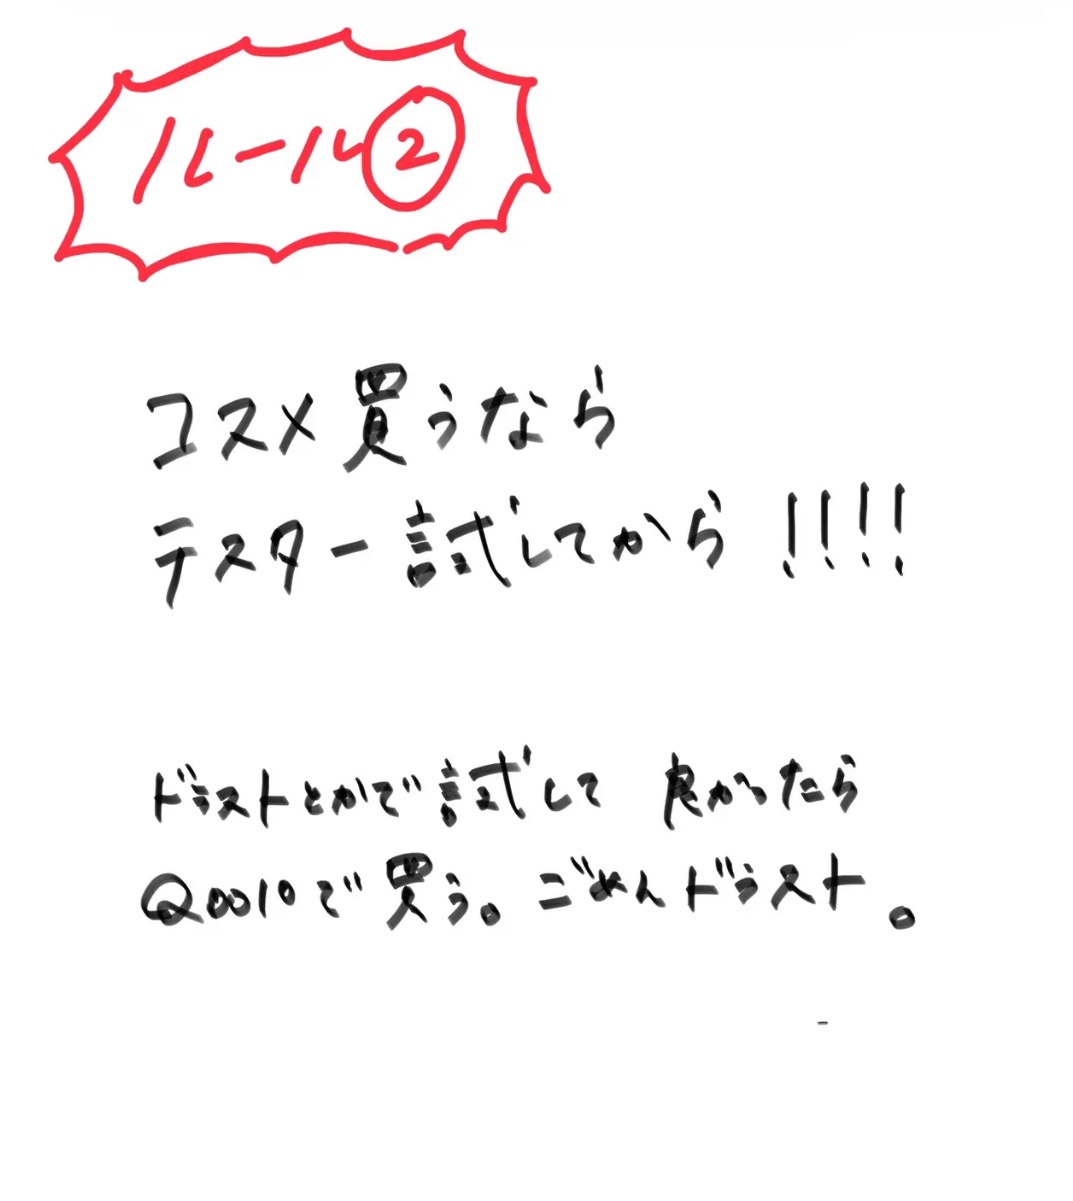 ルール②
コスメ買うなら
テスター試してから!!!!
ドラストとかで試して 良かったら
Qoo10で買う。ごめんドラスト。